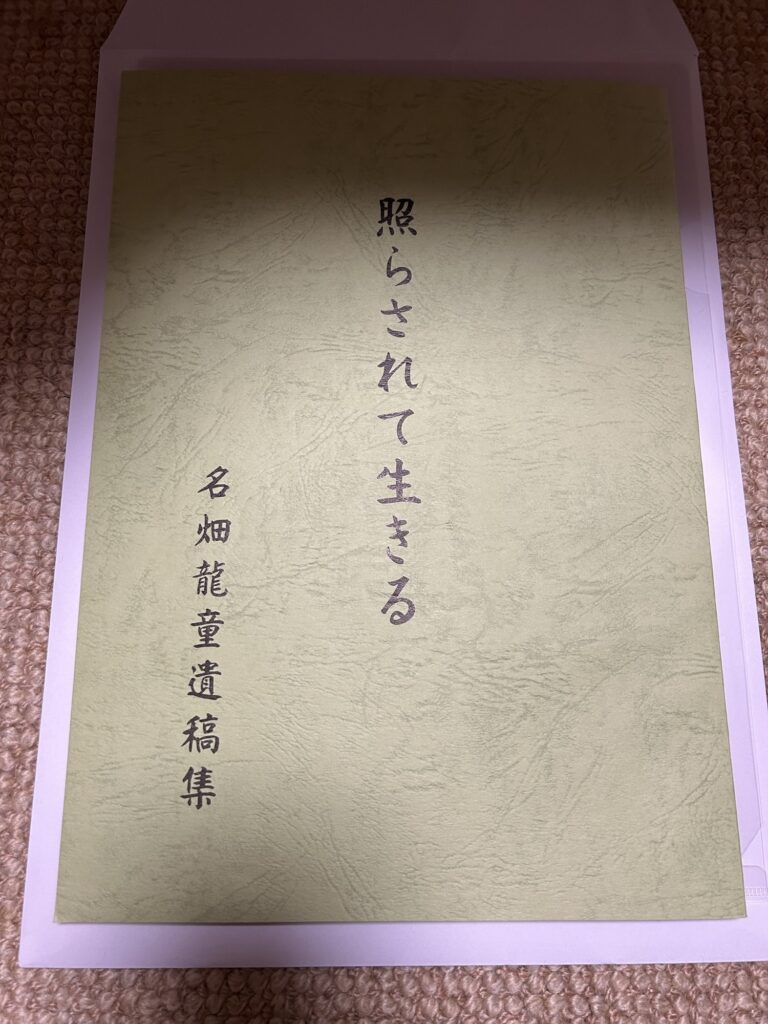 照らされて生きる
名畑龍童遺稿集